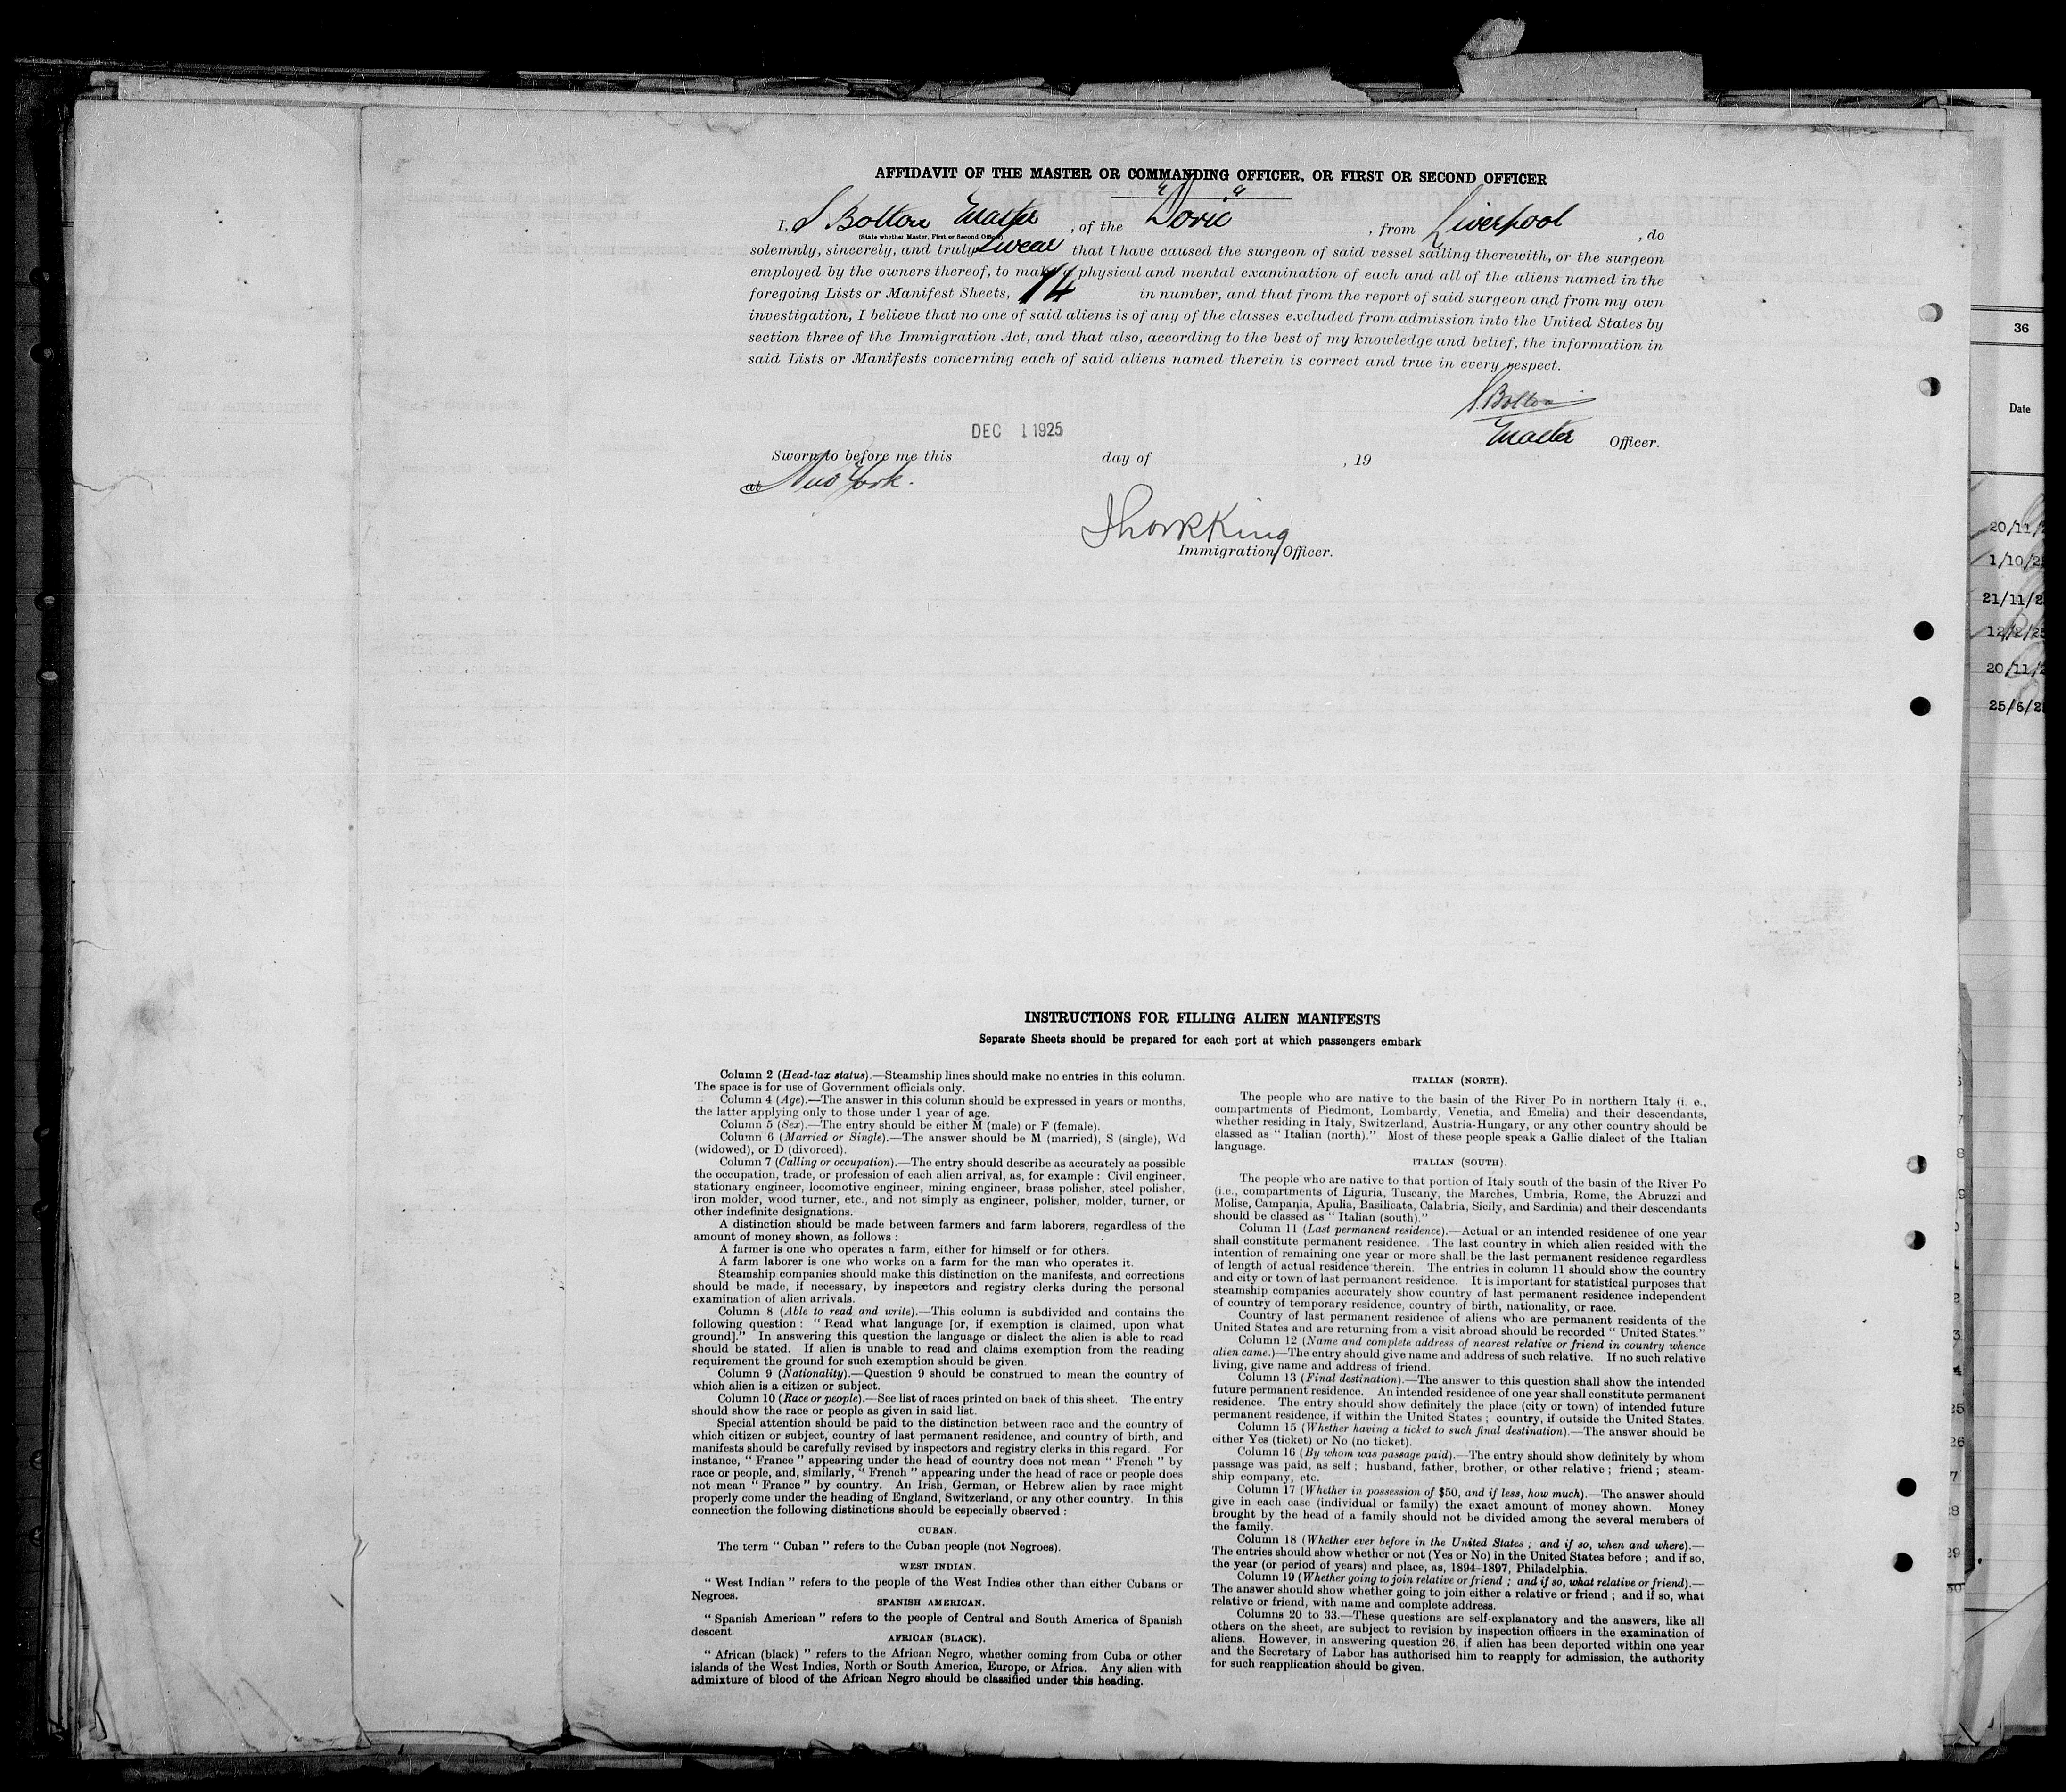 AFFIDAVIT OF THE MASTER OR COMMANDING OFFICER, OR FIRST OR SECOND OFFICER
I, S Bolton Master, of the "Doric", from Liverpool, do
(State whether Master, First or Second Officer)
solemnly, sincerely, and truly Swear that I have caused the surgeon of said vessel sailing therewith, or the surgeon
employed by the owners thereof, to make a physical and mental examination of each and all of the aliens named in the
foregoing Lists or Manifest Sheets, 14 in number, and that from the report of said surgeon and from my own
investigation, I believe that no one of said aliens is of any of the classes excluded from admission into the United States by
section three of the Immigration Act, and that also, according to the best of my knowledge and belief, the information in
said Lists or Manifests concerning each of said aliens named therein is correct and true in every respect.
S. Bolton
Master Officer.
DEC 1 1925
Sworn to before me this day of , 19
at New York.
King
Immigration Officer.
INSTRUCTIONS FOR FILLING ALIEN MANIFESTS
Separate Sheets should be prepared for each port at which passengers embark
Column 2 (Head-tax status).—Steamship lines should make no entries in this column.
The space is for use of Government officials only.
Column 4 (Age).—The answer in this column should be expressed in years or months,
the latter applying only to those under 1 year of age.
Column 5 (Sex).—The entry should be either M (male) or F (female).
Column 6 (Married or Single).—The answer should be M (married), S (single), Wd
(widowed), or D (divorced).
Column 7 (Calling or occupation).—The entry should describe as accurately as possible
the occupation, trade, or profession of each alien arrival, as, for example : Civil engineer,
stationary engineer, locomotive engineer, mining engineer, brass polisher, steel polisher,
iron molder, wood turner, etc., and not simply as engineer, polisher, molder, turner, or
other indefinite designations.
A distinction should be made between farmers and farm laborers, regardless of the
amount of money shown, as follows :
A farmer is one who operates a farm, either for himself or for others.
A farm laborer is one who works on a farm for the man who operates it.
Steamship companies should make this distinction on the manifests, and corrections
should be made, if necessary, by inspectors and registry clerks during the personal
examination of alien arrivals.
Column 8 (Able to read and write).—This column is subdivided and contains the
following question : " Read what language [or, if exemption is claimed, upon what
ground]." In answering this question the language or dialect the alien is able to read
should be stated. If alien is unable to read and claims exemption from the reading
requirement the ground for such exemption should be given.
Column 9 (Nationality).—Question 9 should be construed to mean the country of
which alien is a citizen or subject.
Column 10 (Race or people).—See list of races printed on back of this sheet. The entry
should show the race or people as given in said list.
Special attention should be paid to the distinction between race and the country of
which citizen or subject, country of last permanent residence, and country of birth, and
manifests should be carefully revised by inspectors and registry clerks in this regard. For
instance, " France " appearing under the head of country does not mean " French " by
race or people, and, similarly, " French " appearing under the head of race or people does
not mean " France " by country. An Irish, German, or Hebrew alien by race might
properly come under the heading of England, Switzerland, or any other country. In this
connection the following distinctions should be especially observed :
CUBAN.
The term " Cuban " refers to the Cuban people (not Negroes).
WEST INDIAN.
" West Indian " refers to the people of the West Indies other than either Cubans or
Negroes.
SPANISH AMERICAN.
" Spanish American " refers to the people of Central and South America of Spanish
descent
AFRICAN (BLACK).
" African (black) " refers to the African Negro, whether coming from Cuba or other
islands of the West Indies, North or South America, Europe, or Africa. Any alien with
admixture of blood of the African Negro should be classified under this heading.
ITALIAN (NORTH).
The people who are native to the basin of the River Po in northern Italy (i. e.,
compartments of Piedmont, Lombardy, Venetia, and Emelia) and their descendants,
whether residing in Italy, Switzerland, Austria-Hungary, or any other country should be
classed as " Italian (north)." Most of these people speak a Gallic dialect of the Italian
language.
ITALIAN (SOUTH).
The people who are native to that portion of Italy south of the basin of the River Po
(i.e., compartments of Liguria, Tuscany, the Marches, Umbria, Rome, the Abruzzi and
Molise, Campania, Apulia, Basilicata, Calabria, Sicily, and Sardinia) and their descendants
should be classed as " Italian (south)."
Column 11 (Last permanent residence).—Actual or an intended residence of one year
shall constitute permanent residence. The last country in which alien resided with the
intention of remaining one year or more shall be the last permanent residence regardless
of length of actual residence therein. The entries in column 11 should show the country
and city or town of last permanent residence. It is important for statistical purposes that
steamship companies accurately show country of last permanent residence independent
of country of temporary residence, country of birth, nationality, or race.
Country of last permanent residence of aliens who are permanent residents of the
United States and are returning from a visit abroad should be recorded " United States."
Column 12 (Name and complete address of nearest relative or friend in country whence
alien came.)—The entry should give name and address of such relative. If no such relative
living, give name and address of friend.
Column 13 (Final destination).—The answer to this question shall show the intended
future permanent residence. An intended residence of one year shall constitute permanent
residence. The entry should show definitely the place (city or town) of intended future
permanent residence, if within the United States ; country, if outside the United States.
Column 15 (Whether having a ticket to such final destination).—The answer should be
either Yes (ticket) or No (no ticket).
Column 16 (By whom was passage paid).—The entry should show definitely by whom
passage was paid, as self ; husband, father, brother, or other relative ; friend ; steam-
ship company, etc.
Column 17 (Whether in possession of $50, and if less, how much).—The answer should
give in each case (individual or family) the exact amount of money shown. Money
brought by the head of a family should not be divided among the several members of
the family.
Column 18 (Whether ever before in the United States ; and if so, when and where).—
The entries should show whether or not (Yes or No) in the United States before ; and if so,
the year (or period of years) and place, as, 1894–1897, Philadelphia.
Column 19 (Whether going to join relative or friend ; and if so, what relative or friend).—
The answer should show whether going to join either a relative or friend ; and if so, what
relative or friend, with name and complete address.
Columns 20 to 33.—These questions are self-explanatory and the answers, like all
others on the sheet, are subject to revision by inspection officers in the examination of
aliens. However, in answering question 26, if alien has been deported within one year
and the Secretary of Labor has authorised him to reapply for admission, the authority
for such reapplication should be given.
36
Date
20/11/
1/10/2
21/11/2
12/2/25
20/11/2
25/6/2